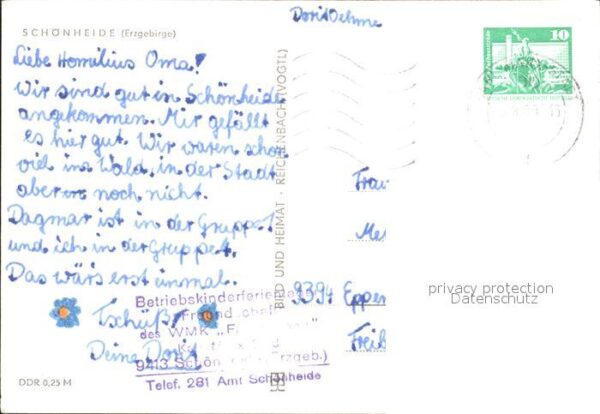 Dorit Oehme
SCHÖNHEIDE (Erzgebirge)
Liebe Homilius Oma!
Wir sind gut in Schönheide
angekommen. Mir gefällt
es hier gut. Wir waren schon
viel im Wald, in der Stadt
aber noch nicht.
Dagmar ist in der Gruppe 1
und ich in der Gruppe 4.
Das wärs erst einmal.
Tschüß!
Deine Dorit
DDR 0,25 M
BILD UND HEIMAT · REICHENBACH (VOGTL)
Betriebskinderferien
des WMK „F
9413 Schön (Erzgeb.)
Telef. 281 Amt Schönheide
10
Frau
9394 Eppen
Freib
privacy protection
Datenschutz